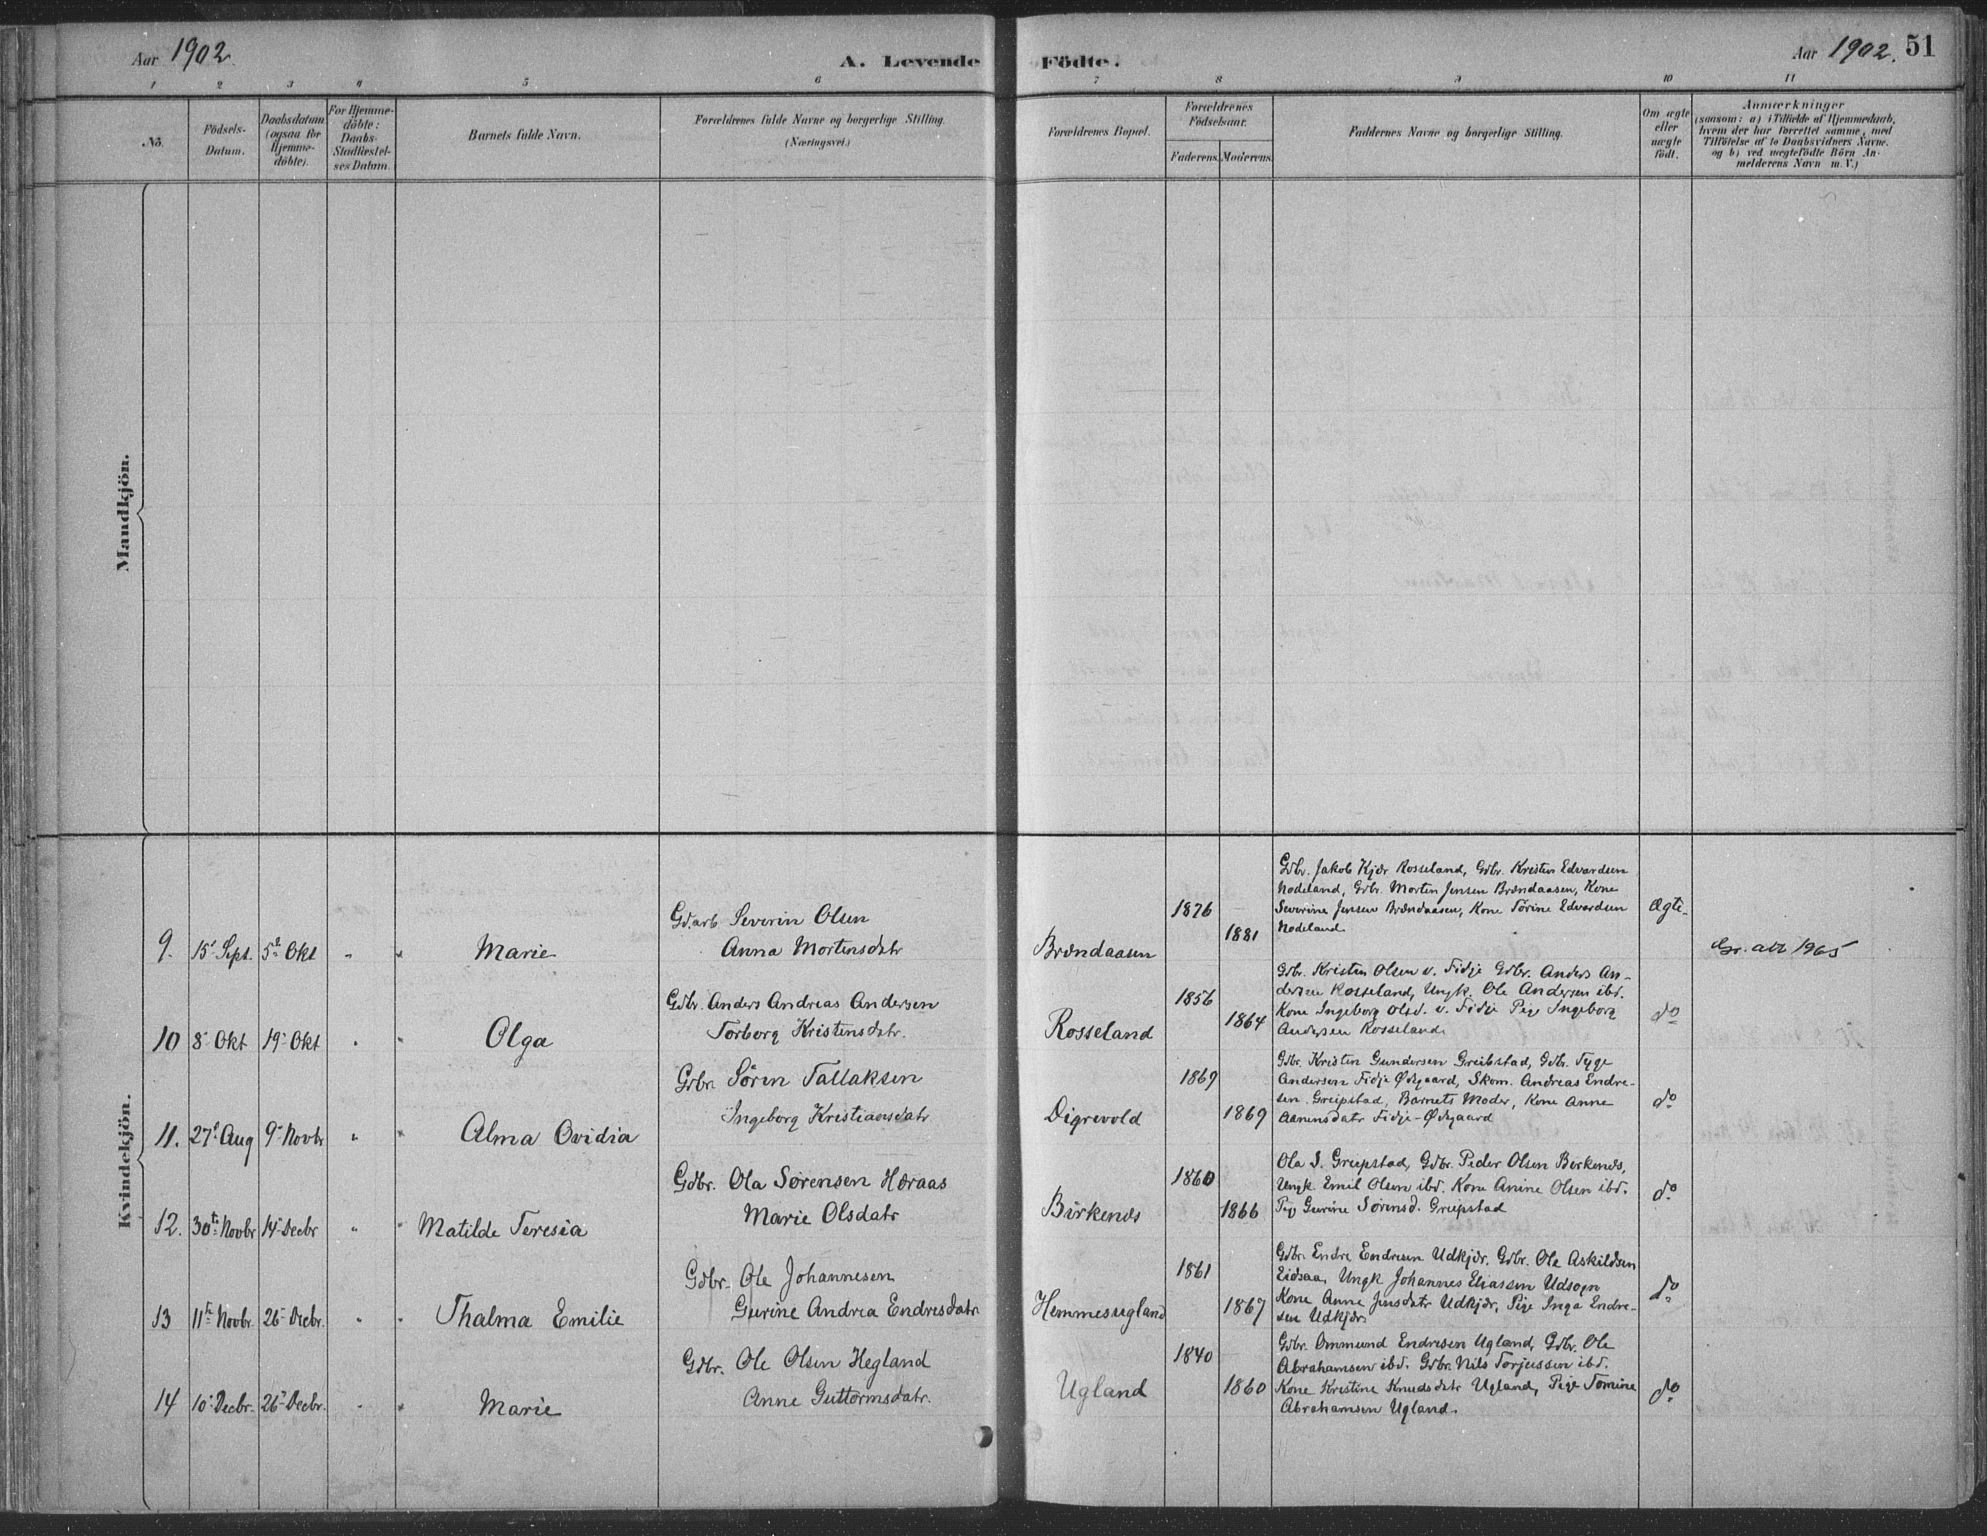 Aar 1902. A. Levende Födte. Aar 1902. 51
1 2 3 4 5 6 7 8 9 10 11
No.
Födsels-Datum.
Daabsdatum (ogsaa for Hjemme-döbte).
For Hjemme-döbte: Daabs-Stadfæstel-ses Datum.
Barnets fulde Navn.
Forældrenes fulde Navne og borgerlige Stilling.
(Næringsvei.)
Forældrenes Bopæl.
Forældrenes Födselsaar.
Faderens. Moderens.
Faddernes Navne og borgerlige Stilling.
Om ægte eller uægte födt.
Anmærkninger
(saasom: a) i Tilfælde af Hjemmedaab,
hvem der har forrettet samme, med
Tilföielse af to Daabsvidners Navne.
og b) ved uægtefödte Börn An-
melderens Navn m. V.)
Mandkjön.
Kvindekjön.
9. 15 Sept. 5 Okt " " Marie
Gd.arb Severin Olsen
Anna Mortensdatr
Brændaasen
1876
1881
Gdbr. Jakob Kjær Rosseland, Gdbr. Kristen Edvardsen
Nodeland, Gdbr. Morten Jensen Brændaasen, Kone
Severine Jensen Brændaasen, Kone Tørine Edvardsen
Nodeland
Ægte
1965
10 8 Okt 19 Okt " " Olga
Gdbr. Anders Andreas Andersen
Torborg Kristensdatr.
Rosseland
1856
1864
Gdbr. Kristen Olsen v. Fidje Gdbr. Anders An-
dersen Rosseland, Ungk. Ole Andersen ibd.
Kone Ingeborg Olsd. v. Fidje Pige Ingeborg
Andersen Rosseland
do
11. 27 Aug 9 Novbr " " Alma Ovidia
Gdbr. Sören Tallaksen
Ingeborg Kristiansdatr
Digrevold
1869
1869
Gdbr. Kristen Gundersen Greibstad, Gdbr. Tyge
Andersen Fidje Ødegaard, Skom. Andreas Endre-
sen Greipstad, Barnets Moder, Kone Anne
Aanensdatr Fidje-Ødegaard
do
12. 30te Novbr 14 Decbr " " Matilde Teresia
Gdbr. Ola Sørensen Høraas
Marie Olsdatr
Birkenes
1860
1866
Ola S. Greipstad, Gdbr. Peder Olsen Berkenes,
Ungk. Emil Olsen ibd. Kone Anine Olsen ibd.
Pige Gurine Sørensd. Greipstad
do
13 11te Novbr. 26 Decbr. " " Thalma Emilie
Gdbr. Ole Johannesen
Gurine Andrea Endresdatr
Hemmesugland
1861
1867
Gdbr. Endre Endresen Udkjær. Gdbr. Ole Askildsen
Eidsaa, Ungk Johannes Eliassen Udsogn
Kone Anne Jensdatr Udkjær, Pige Inga Endre-
sen Udkjær.
do
14 10 Decbr. 26 Decbr. " " Marie
Gdbr. Ole Olsen Hegland
Anne Guttormsdatr.
Ugland
1840
1860
Gdbr. Ommund Endresen Ugland, Gdbr. Ole
Abrahamsen ibd. Gdbr. Nils Torjussen ibd.
Kone Kristine Knudsdatr Ugland, Pige Tomine
Abrahamsen Ugland.
do